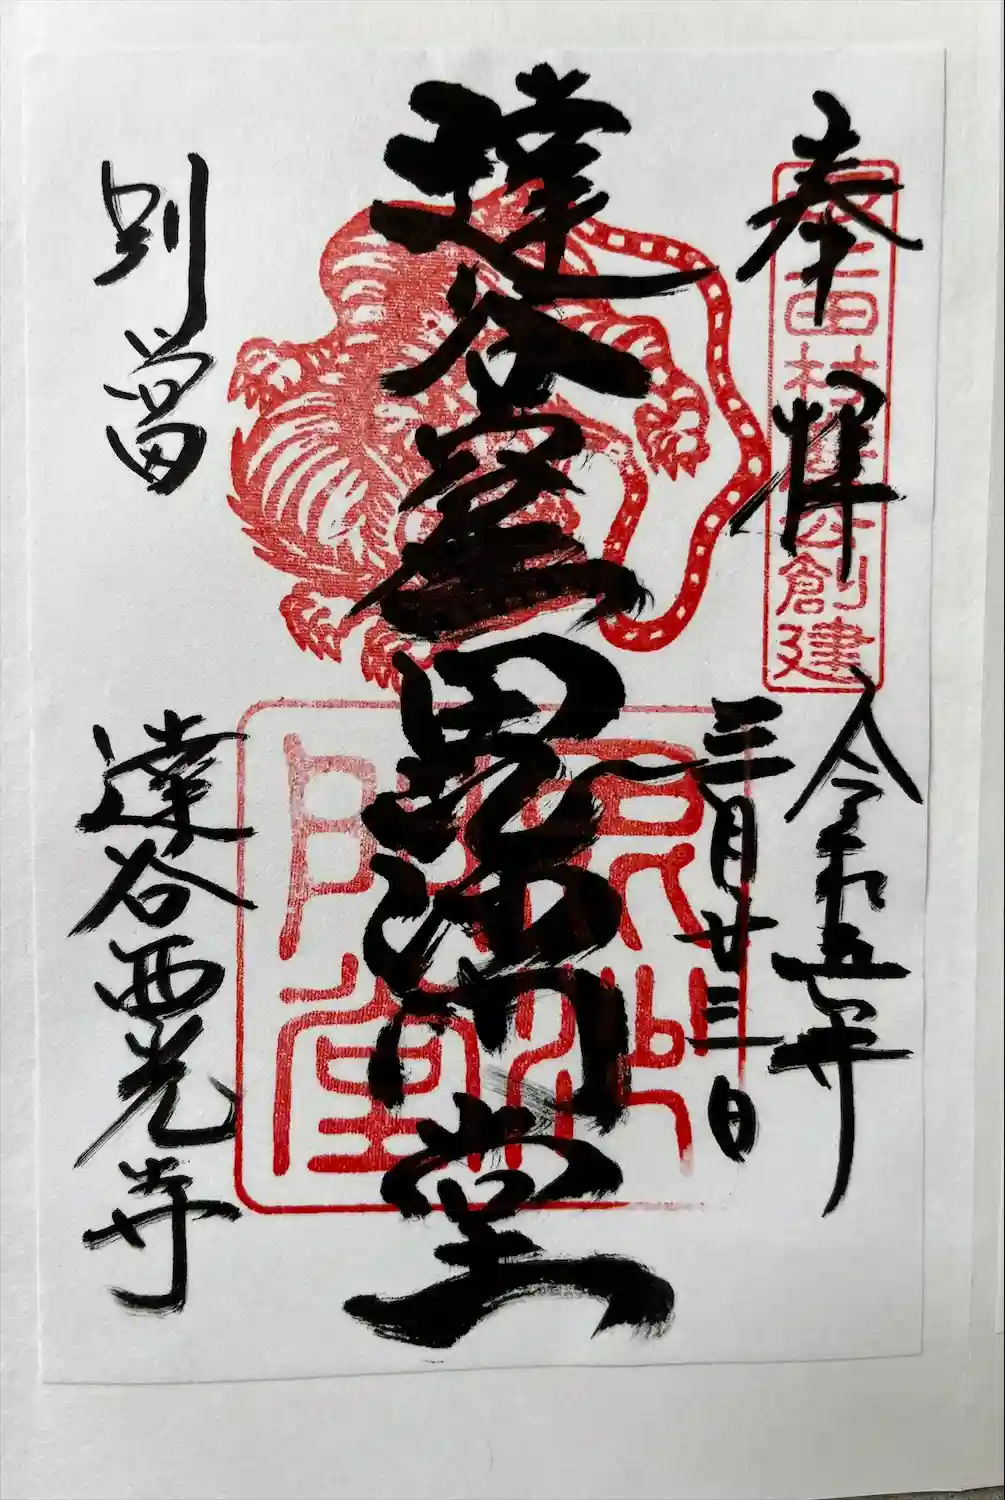 奉拝
令和五年
三月廿三日
坂上田村麿公創建
達谷窟毘沙門堂
毘沙
門堂
別當
達谷西光寺